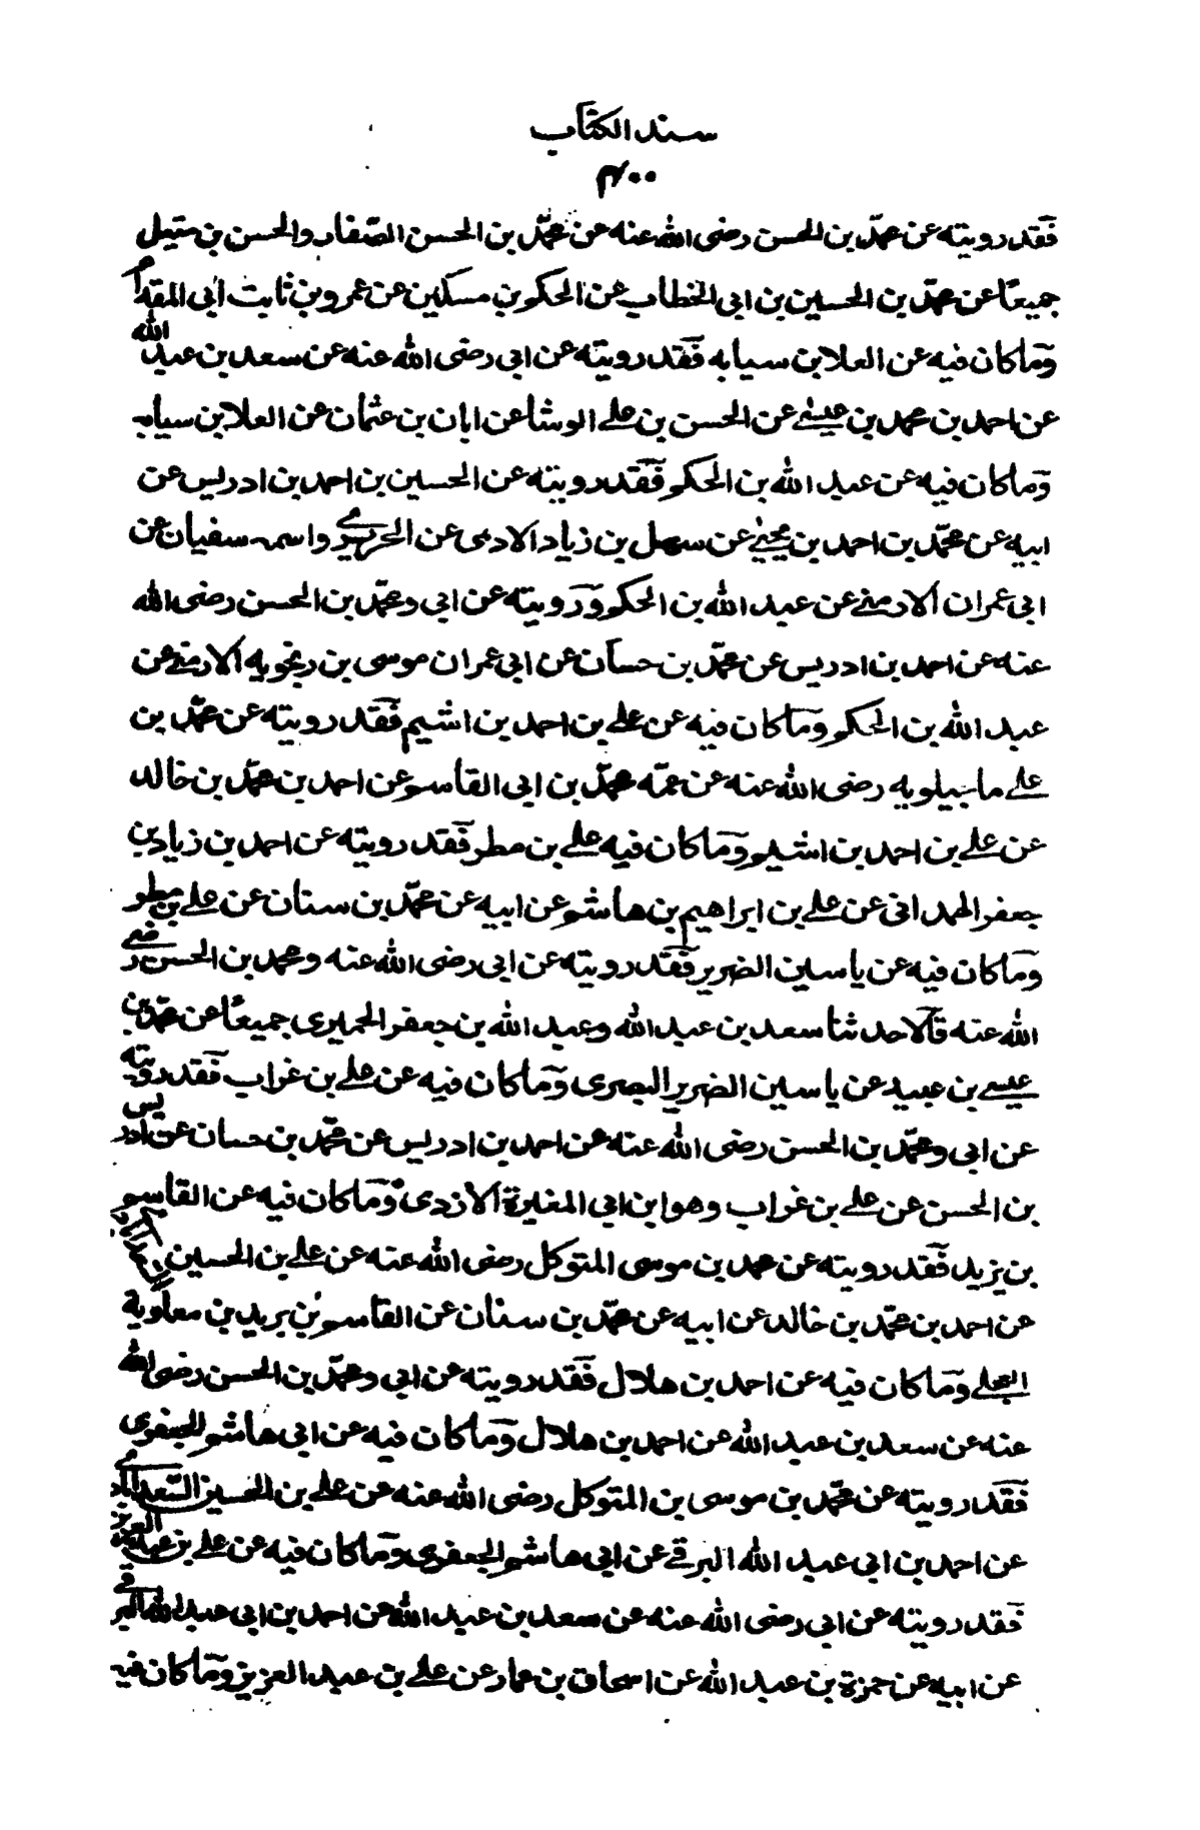 سند الكتاب
م٠٠
فقد رويته عن محمّد بن الحسن رضى الله عنه عن محمّد بن الحسن الصّفار والحسن بن متيل
جميعًا عن محمّد بن الحسين بن ابى الخطاب عن الحكم بن مسكين عن عمرو بن ثابت ابى المقدام
وما كان فيه عن العلا بن سيابه فقد رويته عن ابى رضى الله عنه عن سعد بن عبد الله
عن احمد بن محمد بن عيسى عن الحسن بن على الوشا عن ابان بن عثمان عن العلا بن سيابه
وما كان فيه عن عبد الله بن الحكم فقد رويته عن الحسين بن احمد بن ادريس عن
ابيه عن محمّد بن احمد بن يحيى عن سهل بن زياد الادمى عن الحريرى واسمه سفيان عن
ابى عمران الارمنى عن عبد الله بن الحكم ورويته عن ابى ومحمّد بن الحسن رضى الله
عنه عن احمد بن ادريس عن محمّد بن حسان عن ابى عمران موسى بن رنجويه الارمنى عن
عبد الله بن الحكم وما كان فيه عن على بن احمد بن اشيم فقد رويته عن محمّد بن
على ماجيلويه رضى الله عنه عن عمّه محمّد بن ابى القاسم عن احمد بن محمّد بن خالد
عن على بن احمد بن اشيم وما كان فيه على بن مطر فقد رويته عن احمد بن زياد بن
جعفر الهمدانى عن على بن ابراهيم بن هاشم عن ابيه عن محمّد بن سنان عن على بن مطر
وما كان فيه عن ياسين الضرير فقد رويته عن ابى رضى الله عنه ومحمد بن الحسن رضى
الله عنه قالا حدثنا سعد بن عبد الله وعبد الله بن جعفر الحميرى جميعًا عن محمّد بن
عيسى بن عبيد عن ياسين الضرير البصرى وما كان فيه عن على بن غراب فقد رويته
عن ابى ومحمّد بن الحسن رضى الله عنه عن احمد بن ادريس عن محمّد بن حسان عن ادريس
بن الحسن عن على بن غراب وهو ابن ابى المغيرة الازدى وما كان فيه عن القاسم
بن يزيد فقد رويته عن محمد بن موسى المتوكل رضى الله عنه عن على بن الحسين
عن احمد بن محمّد بن خالد عن ابيه عن محمّد بن سنان عن القاسم بن بريد بن معاوية
العجلى وما كان فيه عن احمد بن هلال فقد رويته عن ابى ومحمّد بن الحسن رضى الله
عنه عن سعد بن عبد الله عن احمد بن هلال وما كان فيه عن ابى هاشم الجعفرى
فقد رويته عن محمّد بن موسى بن المتوكل رضى الله عنه عن على بن الحسين السّعدابادى
عن احمد بن ابى عبد الله البرقى عن ابى هاشم الجعفرى وما كان فيه عن على بن عبد العزيز
فقد رويته عن ابى رضى الله عنه عن سعد بن عبد الله عن احمد بن ابى عبد الله البرقى
عن ابيه عن حمزة بن عبد الله عن اسحاق بن عمار عن على بن عبد العزيز وما كان فيه